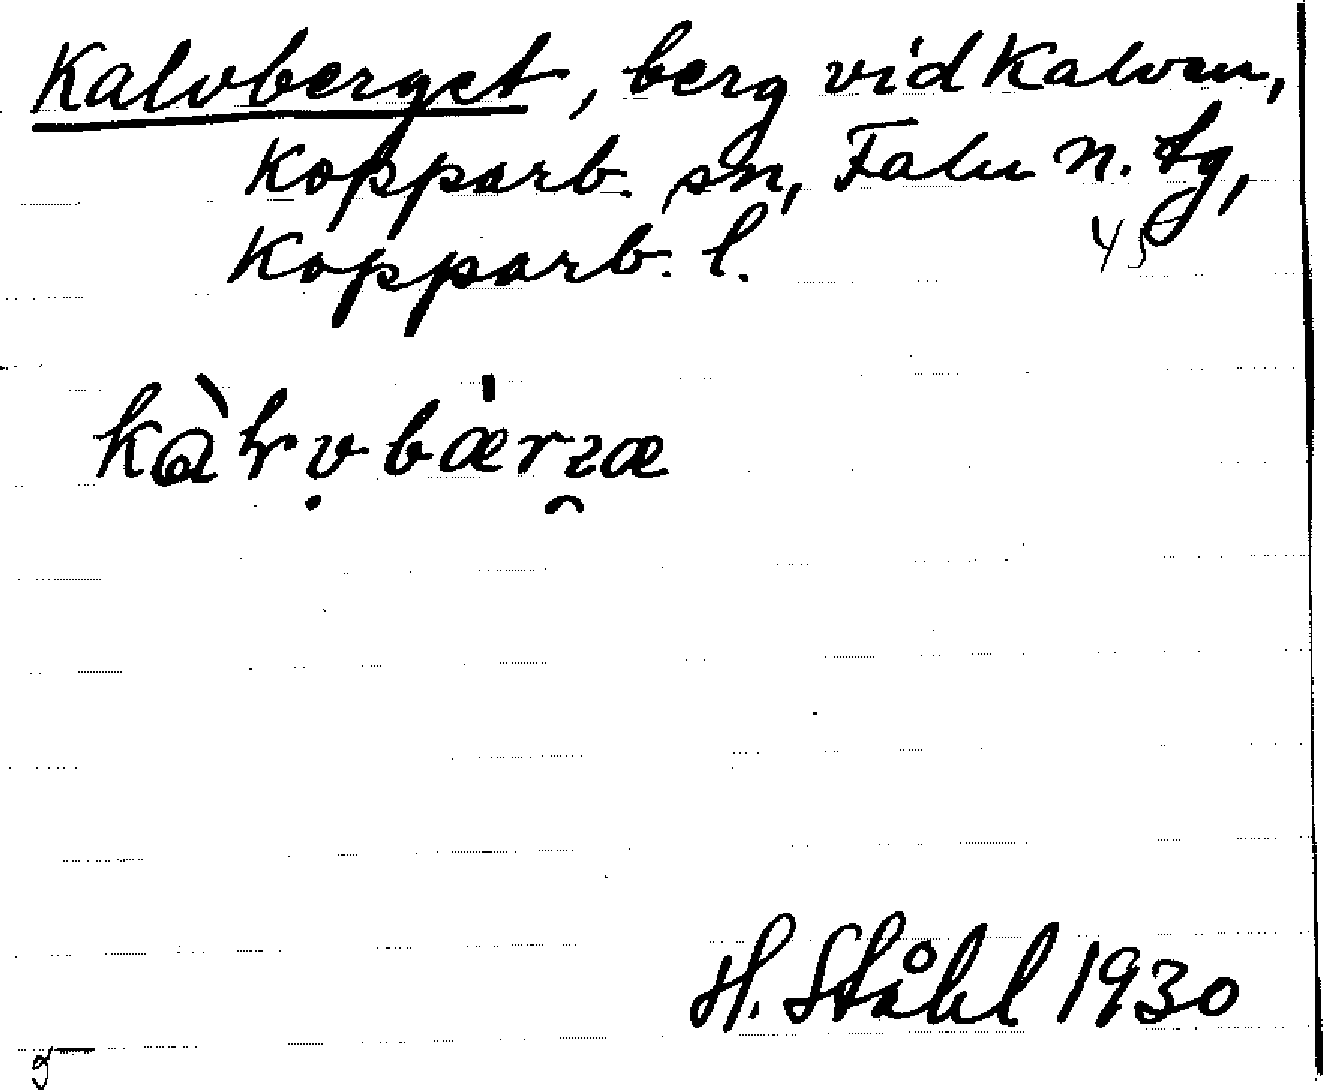 Kalvberget, berg vid Kalven,
Kopparb. sn, Falu n. tg,
Kopparb. l.
45
H. Ståhl 1930